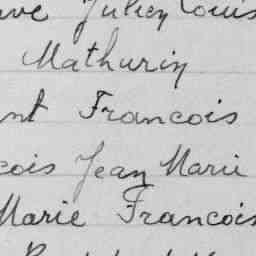 Julien Louis
Mathurin
nt Francois
cois Jean Marie
Marie Francois